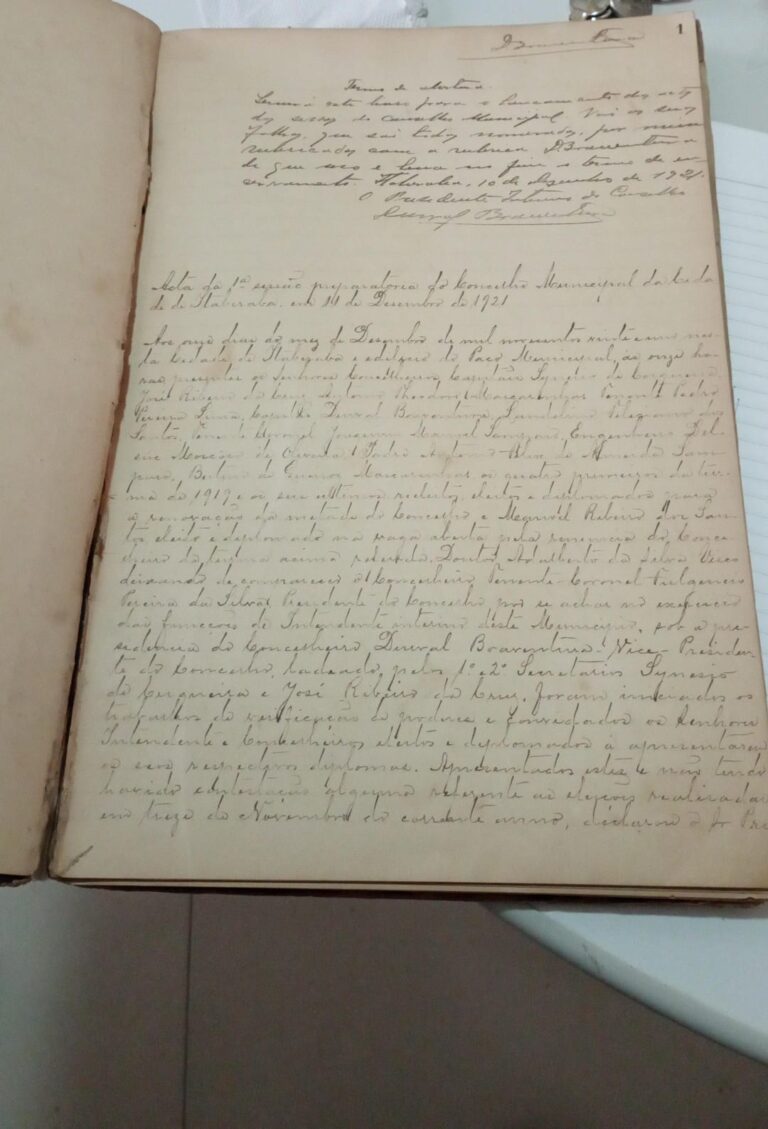 1
D Boaventura
Termo de abertura.
Servirá este livro para o lançamento das actas
das sessões do Conselho Municipal. Vai os seus
folhas, que são todas numeradas, por mim
rubricadas com a rubrica D. Boaventura
de que uso e leva no fim o termo de en-
cerramento. Itaberaba, 10 de Dezembro de 1921.
O Presidente Interino do Conselho
Durval Boaventura
Acta da 1ª sessão preparatoria do Concelho Municipal da Cida
de de Itaberaba, em 11 de Desembro de 1921
Aos onze dias do mez de Desembro de mil novecentos vinte e um nes-
ta Cidade de Itaberaba e edificio do Paço Municipal, as onze ho-
ras, presentes os Senhores Concelheiros, Capitão Synesio de Cerqueira,
José Ribeiro da Cruz, Antonio Theodoro Mascarenhas, Tenente Pedro
Pereira Lima, Capitão Durval Boaventura, Landelino Peregrino dos
Santos, Tenente Coronel Joaquim Manoel Sampaio, Engenheiro
de Almeida Sam-
paio, Mascarenhas os quatro primeiros da tur-
ma de 1919 e os seis ultimos reeleitos, eleitos e diplomados para
a renovação da metade do Concelho e Manoel Ribeiro dos San-
tos, eleito e diplomado na vaga aberta pela renuncia do Conce-
lheiro da turma acima referida, Doutor Adalberto da Silva
deixando de comparecer o Concelheiro Tenente-Coronel Fulgencio
Pereira da Silva, Presidente do Concelho, por se achar no exercicio
das funcções de Intendente interino deste Municipio, sob a pre-
sidencia do Concelheiro Durval Boaventura, Vice-Presiden-
te do Concelho, ladeado pelos 1º e 2º Secretarios Synesio
de Cerqueira e José Ribeiro da Cruz, foram iniciados os
trabalhos de verificação de poderes e convidados os Senhores
Intendente e Concelheiros eleitos e diplomados á apresentarem
os seus respectivos diplomas. Apresentados estes e não tendo
havido contestação alguma referente as eleições realizadas
em treze de Novembro do corrente anno, declarou o Sr Pre